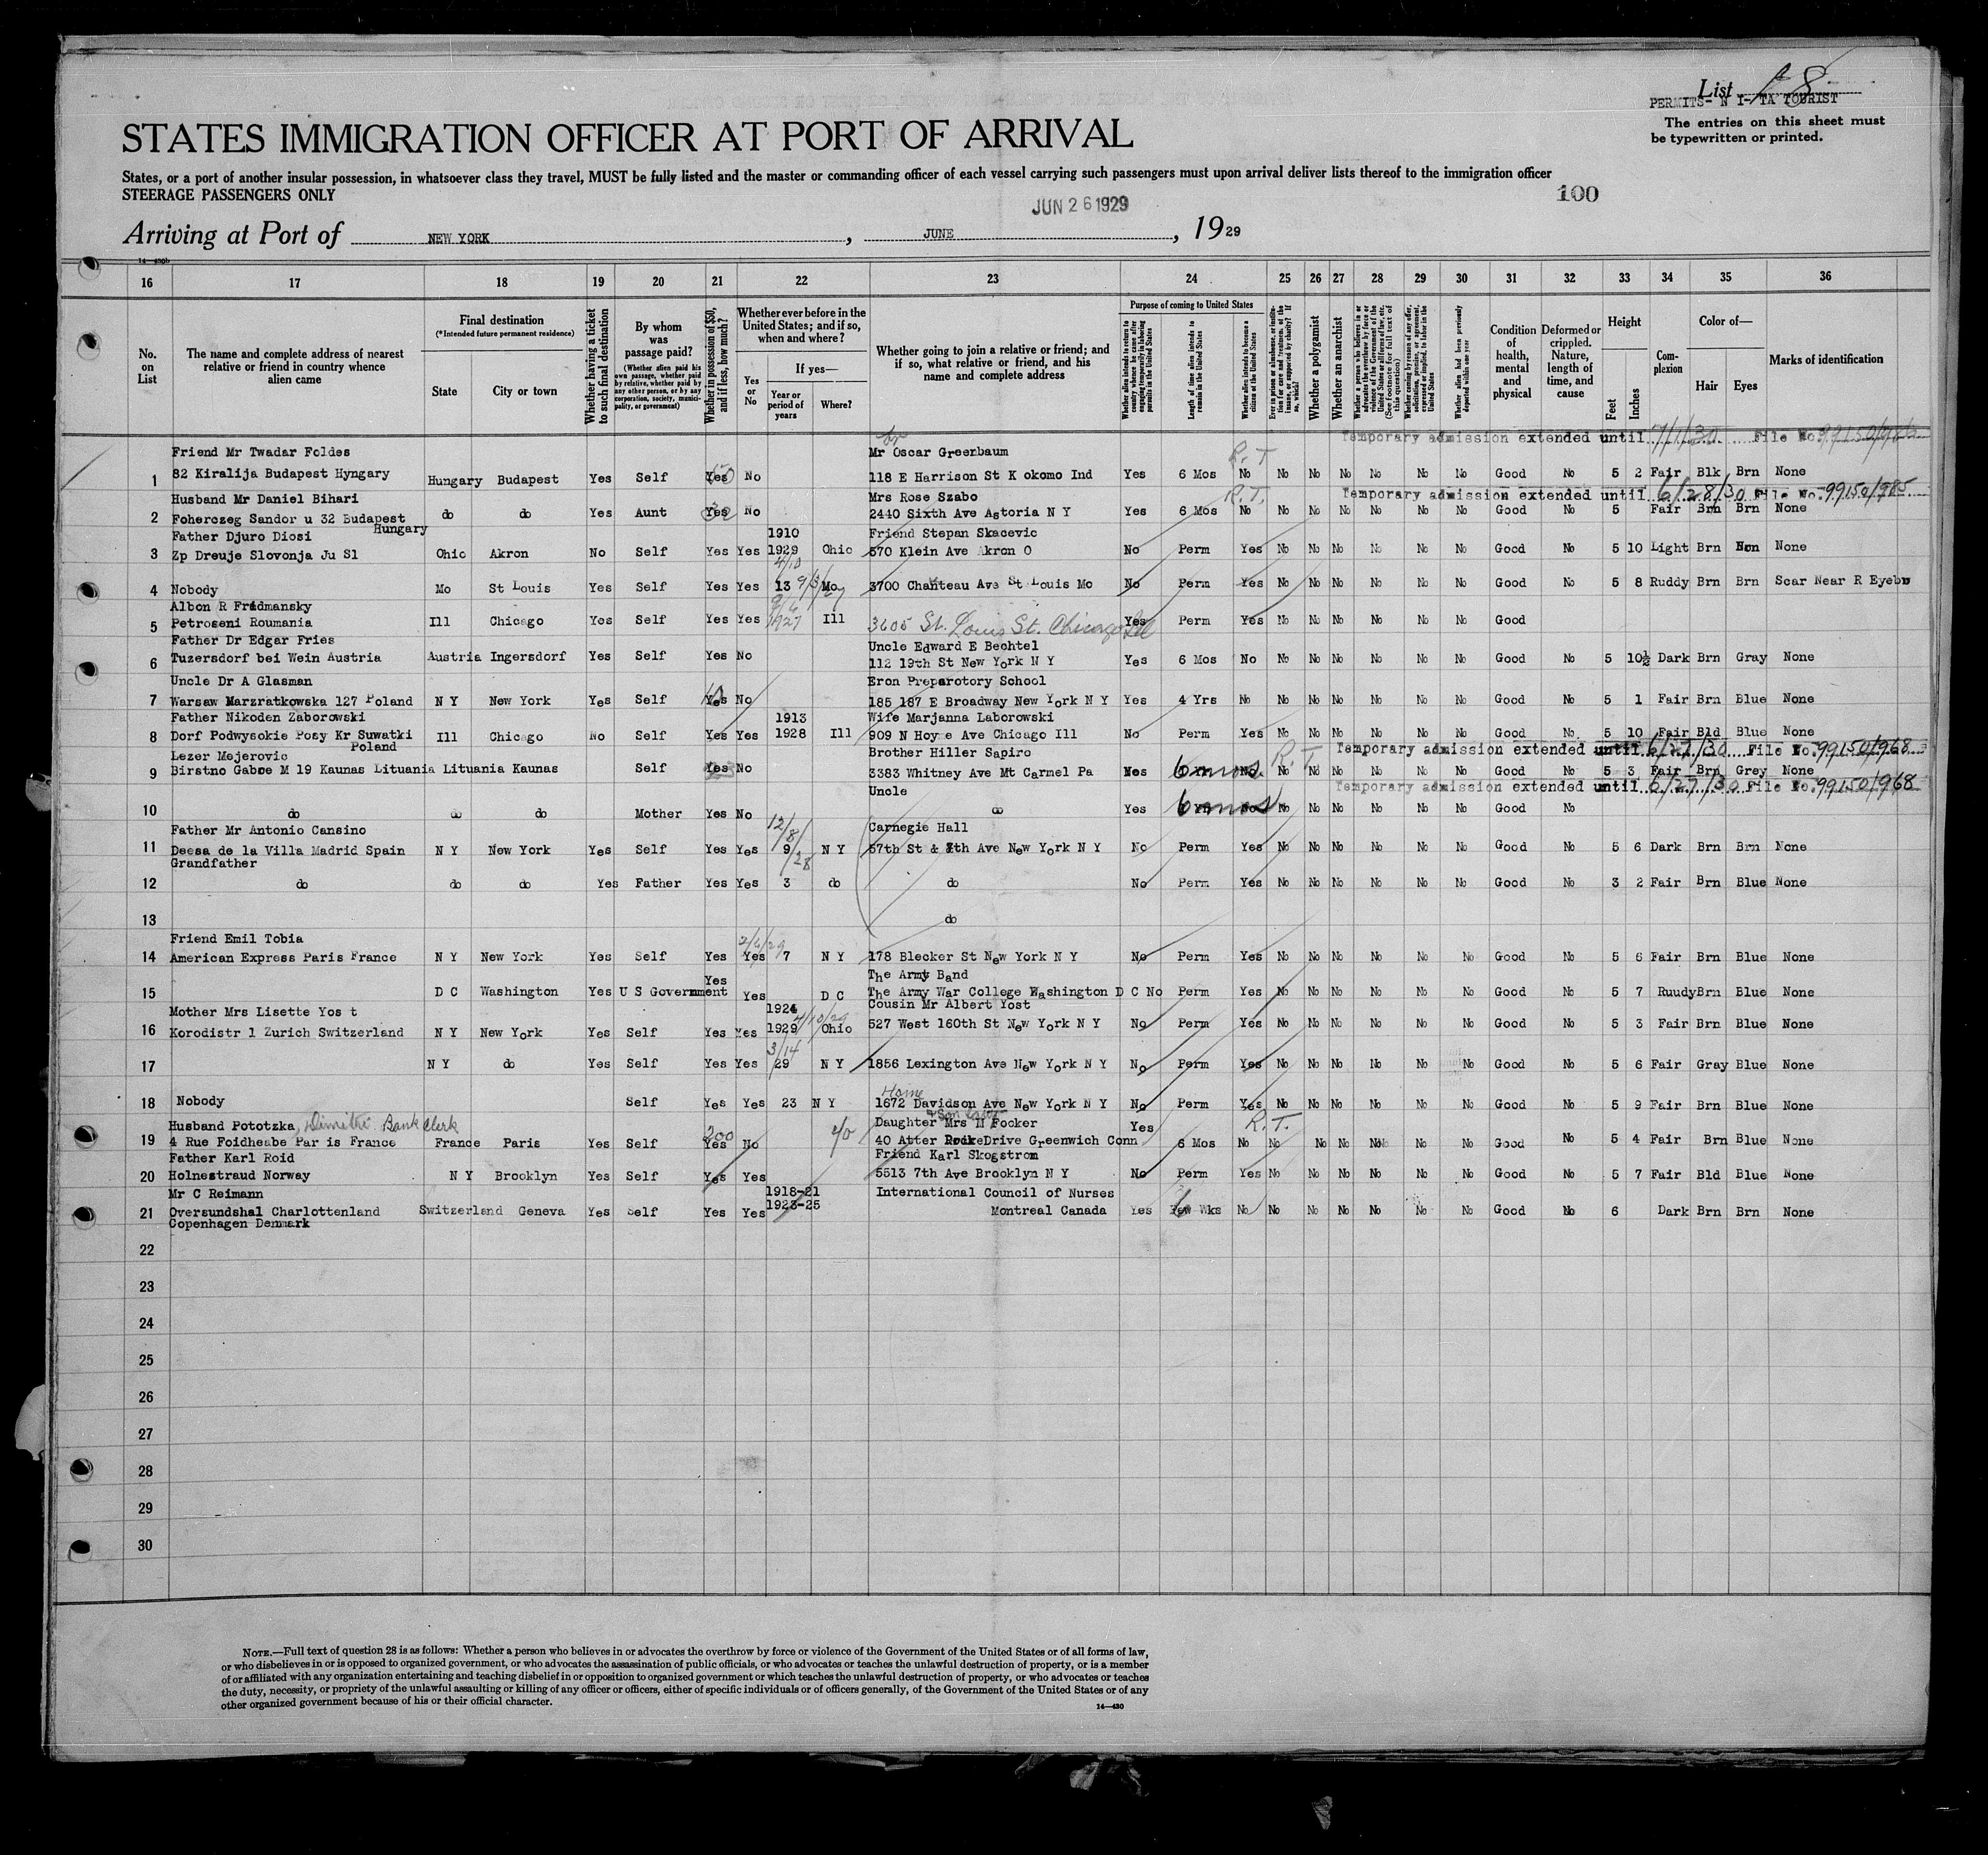 List 18
PERMITS- N I- TA TOURIST
The entries on this sheet must
be typewritten or printed.
STATES IMMIGRATION OFFICER AT PORT OF ARRIVAL
States, or a port of another insular possession, in whatsoever class they travel, MUST be fully listed and the master or commanding officer of each vessel carrying such passengers must upon arrival deliver lists thereof to the immigration officer
STEERAGE PASSENGERS ONLY
100
JUN 26 1929
Arriving at Port of NEW YORK, JUNE, 1929
14—430b
16 17 18 19 20 21 22 23 24 25 26 27 28 29 30 31 32 33 34 35 36
No. on List
The name and complete address of nearest relative or friend in country whence alien came
Final destination
(*Intended future permanent residence)
State
City or town
Whether having a ticket to such final destination
By whom was passage paid?
(Whether alien paid his own passage, whether paid by relative, whether paid by any other person, or by any corporation, society, municipality, or government)
Whether in possession of $50, and if less, how much?
Whether ever before in the United States; and if so, when and where?
Yes or No
If yes—
Year or period of years
Where?
Whether going to join a relative or friend; and if so, what relative or friend, and his name and complete address
Purpose of coming to United States
Whether alien intends to return to country whence he came after engaging temporarily in laboring pursuits in the United States
Length of time alien intends to remain in the United States
Whether alien intends to become a citizen of the United States
Ever in prison or almshouse, or institution for care and treatment of the insane, or supported by charity? If so, which?
Whether a polygamist
Whether an anarchist
Whether a person who believes in or advocates the overthrow by force or violence of the Government of the United States or all forms of law, etc. (See footnote for full text of this question)
Whether coming by reason of any offer, solicitation, promise, or agreement, expressed or implied, to labor in the United States
Whether alien had been previously deported within one year
Condition of health, mental and physical
Deformed or crippled. Nature, length of time, and cause
Height
Feet
Inches
Complexion
Color of—
Hair
Eyes
Marks of identification
Temporary admission extended until 7/1/30 File No.
Friend Mr Twadar Foldes Mr Oscar Greenbaum R.T
1 82 Kiralija Budapest Hyngary Hungary Budapest Yes Self Yes 50 No 118 E Harrison St K okomo Ind Yes 6 Mos No No No No No No No Good No 5 2 Fair Blk Brn None
Husband Mr Daniel Bihari Mrs Rose Szabo R.T. Temporary admission extended until 6/28/30 File No. 99150/985
2 Foherczeg Sandor u 32 Budapest Hungary do do Yes Aunt Yes No 2440 Sixth Ave Astoria N Y Yes 6 Mos No No No No No No No Good No 5 Fair Brn Brn None
Father Djuro Diosi 1910 Friend Stepan Skacevic
3 Zp Dreuje Slovonja Ju Sl Ohio Akron No Self Yes Yes 1929 Ohio 570 Klein Ave Akron O No Perm Yes No No No No No No Good No 5 10 Light Brn None
4 Nobody Mo St Louis Yes Self Yes Yes 13 Mo 3700 Chauteau Ave St Louis Mo No Perm Yes No No No No No No Good No 5 8 Ruddy Brn Brn Scar Near R Eyebr
Albon R Fridmansky
5 Petroseni Roumania Ill Chicago Yes Self Yes Yes 1927 Ill 3605 St. Louis St. Chicago Ill Yes Perm Yes No No No No No No Good
Father Dr Edgar Fries Uncle Edward E Bechtel
6 Tuzersdorf bei Wein Austria Austria Ingersdorf Yes Self Yes No 112 19th St New York N Y Yes 6 Mos No No No No No No No Good No 5 10½ Dark Brn Gray None
Uncle Dr A Glasman Eron Preparotory School
7 Warsaw Marzratkowska 127 Poland N Y New York Yes Self Yes No 185 187 E Broadway New York N Y Yes 4 Yrs No No No No No No No Good No 5 1 Fair Brn Blue None
Father Nikoden Zaborowski 1913 Wife Marjanna Laborowski
8 Dorf Podwysokie Posy Kr Suwatki Poland Ill Chicago No Self Yes Yes 1928 Ill 909 N Hoyne Ave Chicago Ill No Perm Yes No No No No No No Good No 5 10 Fair Bld Blue None
Lezer Mejerovic Brother Hiller Sapiro R.T. Temporary admission extended until 6/27/30 File No. 99150/968
9 Birstno Gabce M 19 Kaunas Lituania Lituania Kaunas Self Yes No 3383 Whitney Ave Mt Carmel Pa Yes 6 mos. No No No No No No No Good No 5 3 Fair Brn Grey None
Uncle Temporary admission extended until 6/27/30 File No. 99150/968
10 do do do Mother Yes No do Yes 6 mos No No No No No No No Good No
Father Mr Antonio Cansino 12/8/28 Carnegie Hall
11 Deesa de la Villa Madrid Spain N Y New York Yes Self Yes Yes 9 N Y 57th St & 7th Ave New York N Y No Perm Yes No No No No No No Good No 5 6 Dark Brn Brn None
Grandfather
12 do do do Yes Father Yes Yes 3 do do No Perm Yes No No No No No No Good No 3 2 Fair Brn Blue None
13 do
Friend Emil Tobia
14 American Express Paris France N Y New York Yes Self Yes Yes 7 N Y 178 Blecker St New York N Y No Perm Yes No No No No No No Good No 5 6 Fair Brn Blue None
Yes The Army Band
15 D C Washington Yes U S Government Yes D C The Army War College Washington D C No Perm Yes No No No No No No Good No 5 7 Ruudy Brn Blue None
Mother Mrs Lisette Yos t 1924 4/10/29 Cousin Mr Albert Yost
16 Korodistr 1 Zurich Switzerland N Y New York Yes Self Yes Yes 1929 Ohio 527 West 160th St New York N Y No Perm Yes No No No No No No Good No 5 3 Fair Brn Blue None
3/14
17 N Y do Yes Self Yes Yes 29 N Y 1856 Lexington Ave New York N Y No Perm Yes No No No No No No Good No 5 6 Fair Gray Blue None
Home
18 Nobody Self Yes Yes 23 N Y 1672 Davidson Ave New York N Y No Perm Yes No No No No No No Good No 5 9 Fair Brn Blue None
Husband Pototzka, Dimitri Bank Clerk 200 Daughter Mrs M Focker Yes R.T.
19 4 Rue Foidheabe Par is France France Paris Yes Self Yes No 40 Atter Drive Greenwich Conn 6 Mos No No No No No No No Good No 5 4 Fair Brn Blue None
Father Karl Roid Friend Karl Skogstrom
20 Holnestraud Norway N Y Brooklyn Yes Self Yes Yes 5513 7th Ave Brooklyn N Y No Perm Yes No No No No No No Good No 5 7 Fair Bld Blue None
Mr C Reimann 1918-21 International Council of Nurses
21 Oversundshal Charlottenland Switzerland Geneva Yes Self Yes Yes 1923-25 Montreal Canada Yes 6 Wks No No No No No No No Good No 6 Dark Brn Brn None
Copenhagen Denmark
22
23
24
25
26
27
28
29
30
NOTE.—Full text of question 28 is as follows: Whether a person who believes in or advocates the overthrow by force or violence of the Government of the United States or of all forms of law,
or who disbelieves in or is opposed to organized government, or who advocates the assassination of public officials, or who advocates or teaches the unlawful destruction of property, or is a member
of or affiliated with any organization entertaining and teaching disbelief in or opposition to organized government or which teaches the unlawful destruction of property, or who advocates or teaches
the duty, necessity, or propriety of the unlawful assaulting or killing of any officer or officers, either of specific individuals or of officers generally, of the Government of the United States or of any
other organized government because of his or their official character.
14—430